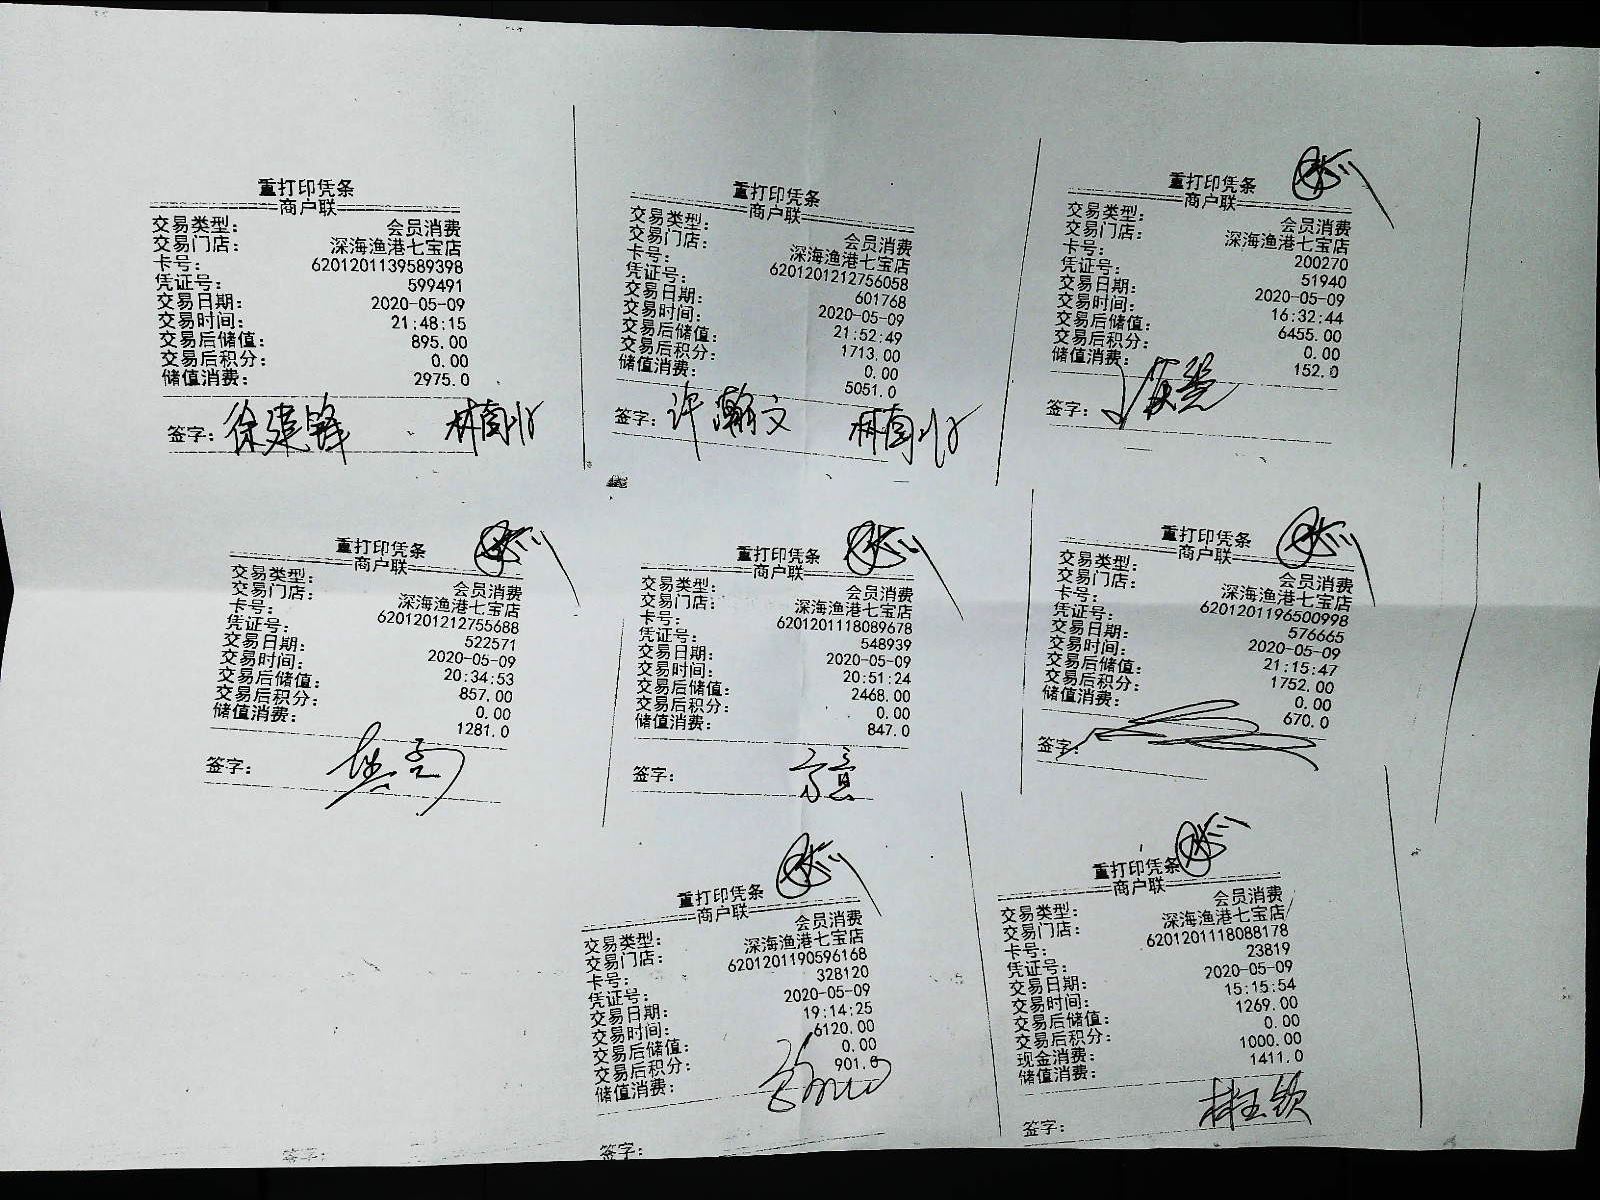 重打印凭条
商户联
交易类型： 会员消费
交易门店： 深海渔港七宝店
卡号： 6201201139589398
凭证号： 599491
交易日期： 2020-05-09
交易时间： 21:48:15
交易后储值： 895.00
交易后积分： 0.00
储值消费： 2975.0
签字： 徐建锋
重打印凭条
商户联
交易类型： 会员消费
交易门店： 深海渔港七宝店
卡号： 6201201212756058
凭证号： 601768
交易日期： 2020-05-09
交易时间： 21:52:49
交易后储值： 1713.00
交易后积分： 0.00
储值消费： 5051.0
签字： 许瀚文
重打印凭条
商户联
交易类型： 会员消费
交易门店： 深海渔港七宝店
卡号： 200270
凭证号： 51940
交易日期： 2020-05-09
交易时间： 16:32:44
交易后储值： 6455.00
交易后积分： 0.00
储值消费： 152.0
签字：
重打印凭条
商户联
交易类型： 会员消费
交易门店： 深海渔港七宝店
卡号： 6201201212755688
凭证号： 522571
交易日期： 2020-05-09
交易时间： 20:34:53
交易后储值： 857.00
交易后积分： 0.00
储值消费： 1281.0
签字：
重打印凭条
商户联
交易类型： 会员消费
交易门店： 深海渔港七宝店
卡号： 6201201118089678
凭证号： 548939
交易日期： 2020-05-09
交易时间： 20:51:24
交易后储值： 2468.00
交易后积分： 0.00
储值消费： 847.0
签字：
重打印凭条
商户联
交易类型： 会员消费
交易门店： 深海渔港七宝店
卡号： 6201201196500998
凭证号： 576665
交易日期： 2020-05-09
交易时间： 21:15:47
交易后储值： 1752.00
交易后积分： 0.00
储值消费： 670.0
签字：
重打印凭条
商户联
交易类型： 会员消费
交易门店： 深海渔港七宝店
卡号： 6201201190596168
凭证号： 328120
交易日期： 2020-05-09
交易时间： 19:14:25
交易后储值： 6120.00
交易后积分： 0.00
储值消费： 901.0
签字：
重打印凭条
商户联
交易类型： 会员消费
交易门店： 深海渔港七宝店
卡号： 6201201118088178
凭证号： 23819
交易日期： 2020-05-09
交易时间： 15:15:54
交易后储值： 1269.00
交易后积分： 0.00
现金消费： 1000.00
储值消费： 1411.0
签字： 林玉钦
签字：